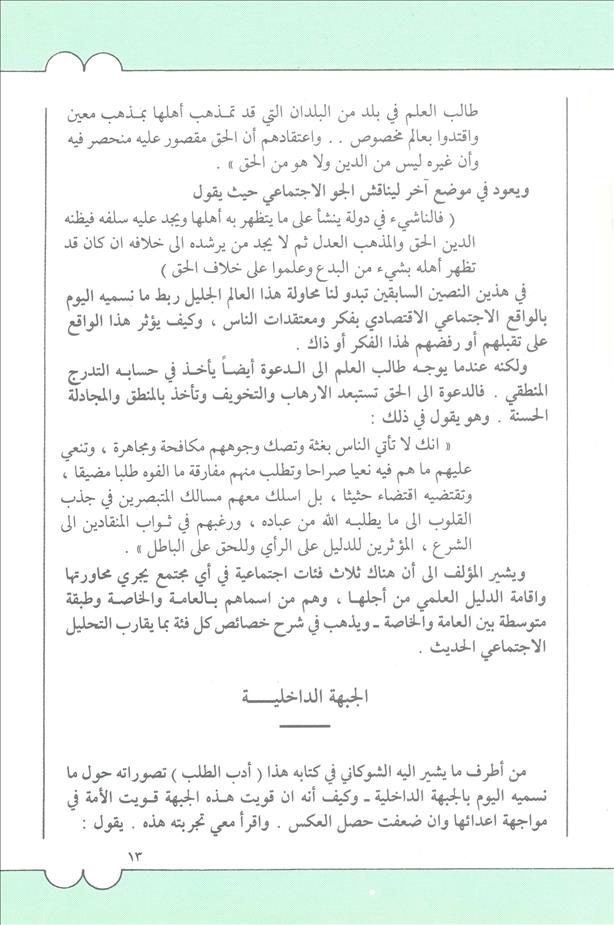 طالب العلم في بلد من البلدان التي قد تمذهب أهلها بمذهب معين
واقتدوا بعالم مخصوص . . واعتقادهم أن الحق مقصور عليه منحصر فيه
وأن غيره ليس من الدين ولا هو من الحق » .
ويعود في موضع آخر ليناقش الجو الاجتماعي حيث يقول
( فالناشيء في دولة ينشأ على ما يتظهر به أهلها ويجد عليه سلفه فيظنه
الدين الحق والمذهب العدل ثم لا يجد من يرشده الى خلافه ان كان قد
تظهر أهله بشيء من البدع وعلموا على خلاف الحق )
في هذين النصين السابقين تبدو لنا محاولة هذا العالم الجليل ربط ما نسميه اليوم
بالواقع الاجتماعي الاقتصادي بفكر ومعتقدات الناس ، وكيف يؤثر هذا الواقع
على تقبلهم أو رفضهم لهذا الفكر أو ذاك .
ولكنه عندما يوجه طالب العلم الى الدعوة أيضاً يأخذ في حسابه التدرج
المنطقي . فالدعوة الى الحق تستبعد الارهاب والتخويف وتأخذ بالمنطق والمجادلة
الحسنة . وهو يقول في ذلك :
« انك لا تأتي الناس بغثة وتصك وجوههم مكافحة ومجاهرة ، وتنعي
عليهم ما هم فيه نعيا صراحا وتطلب منهم مفارقة ما الفوه طلبا مضيقا ،
وتقتضيه اقتضاء حثيثا ، بل اسلك معهم مسالك المتبصرين في جذب
القلوب الى ما يطلبه الله من عباده ، ورغبهم في ثواب المنقادين الى
الشرع ، المؤثرين للدليل على الرأي وللحق على الباطل » .
ويشير المؤلف الى أن هناك ثلاث فئات اجتماعية في أي مجتمع يجري محاورتها
واقامة الدليل العلمي من أجلها ، وهم من اسماهم بالعامة والخاصة وطبقة
متوسطة بين العامة والخاصة ـ ويذهب في شرح خصائص كل فئة بما يقارب التحليل
الاجتماعي الحديث .
الجبهة الداخلية
من أطرف ما يشير اليه الشوكاني في كتابه هذا ( أدب الطلب ) تصوراته حول ما
نسميه اليوم بالجبهة الداخلية ـ وكيف أنه ان قويت هذه الجبهة قويت الأمة في
مواجهة اعدائها وان ضعفت حصل العكس . واقرأ معي تجربته هذه . يقول :
١٣